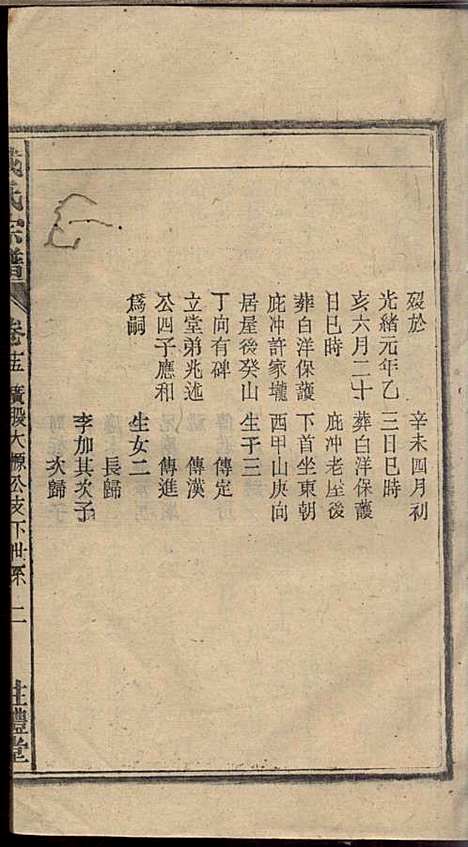 歿於
光緒元年乙
亥六月二十
日巳時
葬白洋保護
庇冲許家壠
居屋後癸山
丁向有碑
立堂弟兆述
公四子應和
爲嗣
辛未四月初
三日巳時
葬白洋保護
庇冲老屋後
下首坐東朝
西甲山庚向
生子三
傳定
傳漢
傳進
生女二
長歸
李加其次子
次歸
氏宗譜
卡五 廣殿大順公支下世系 二
禮堂